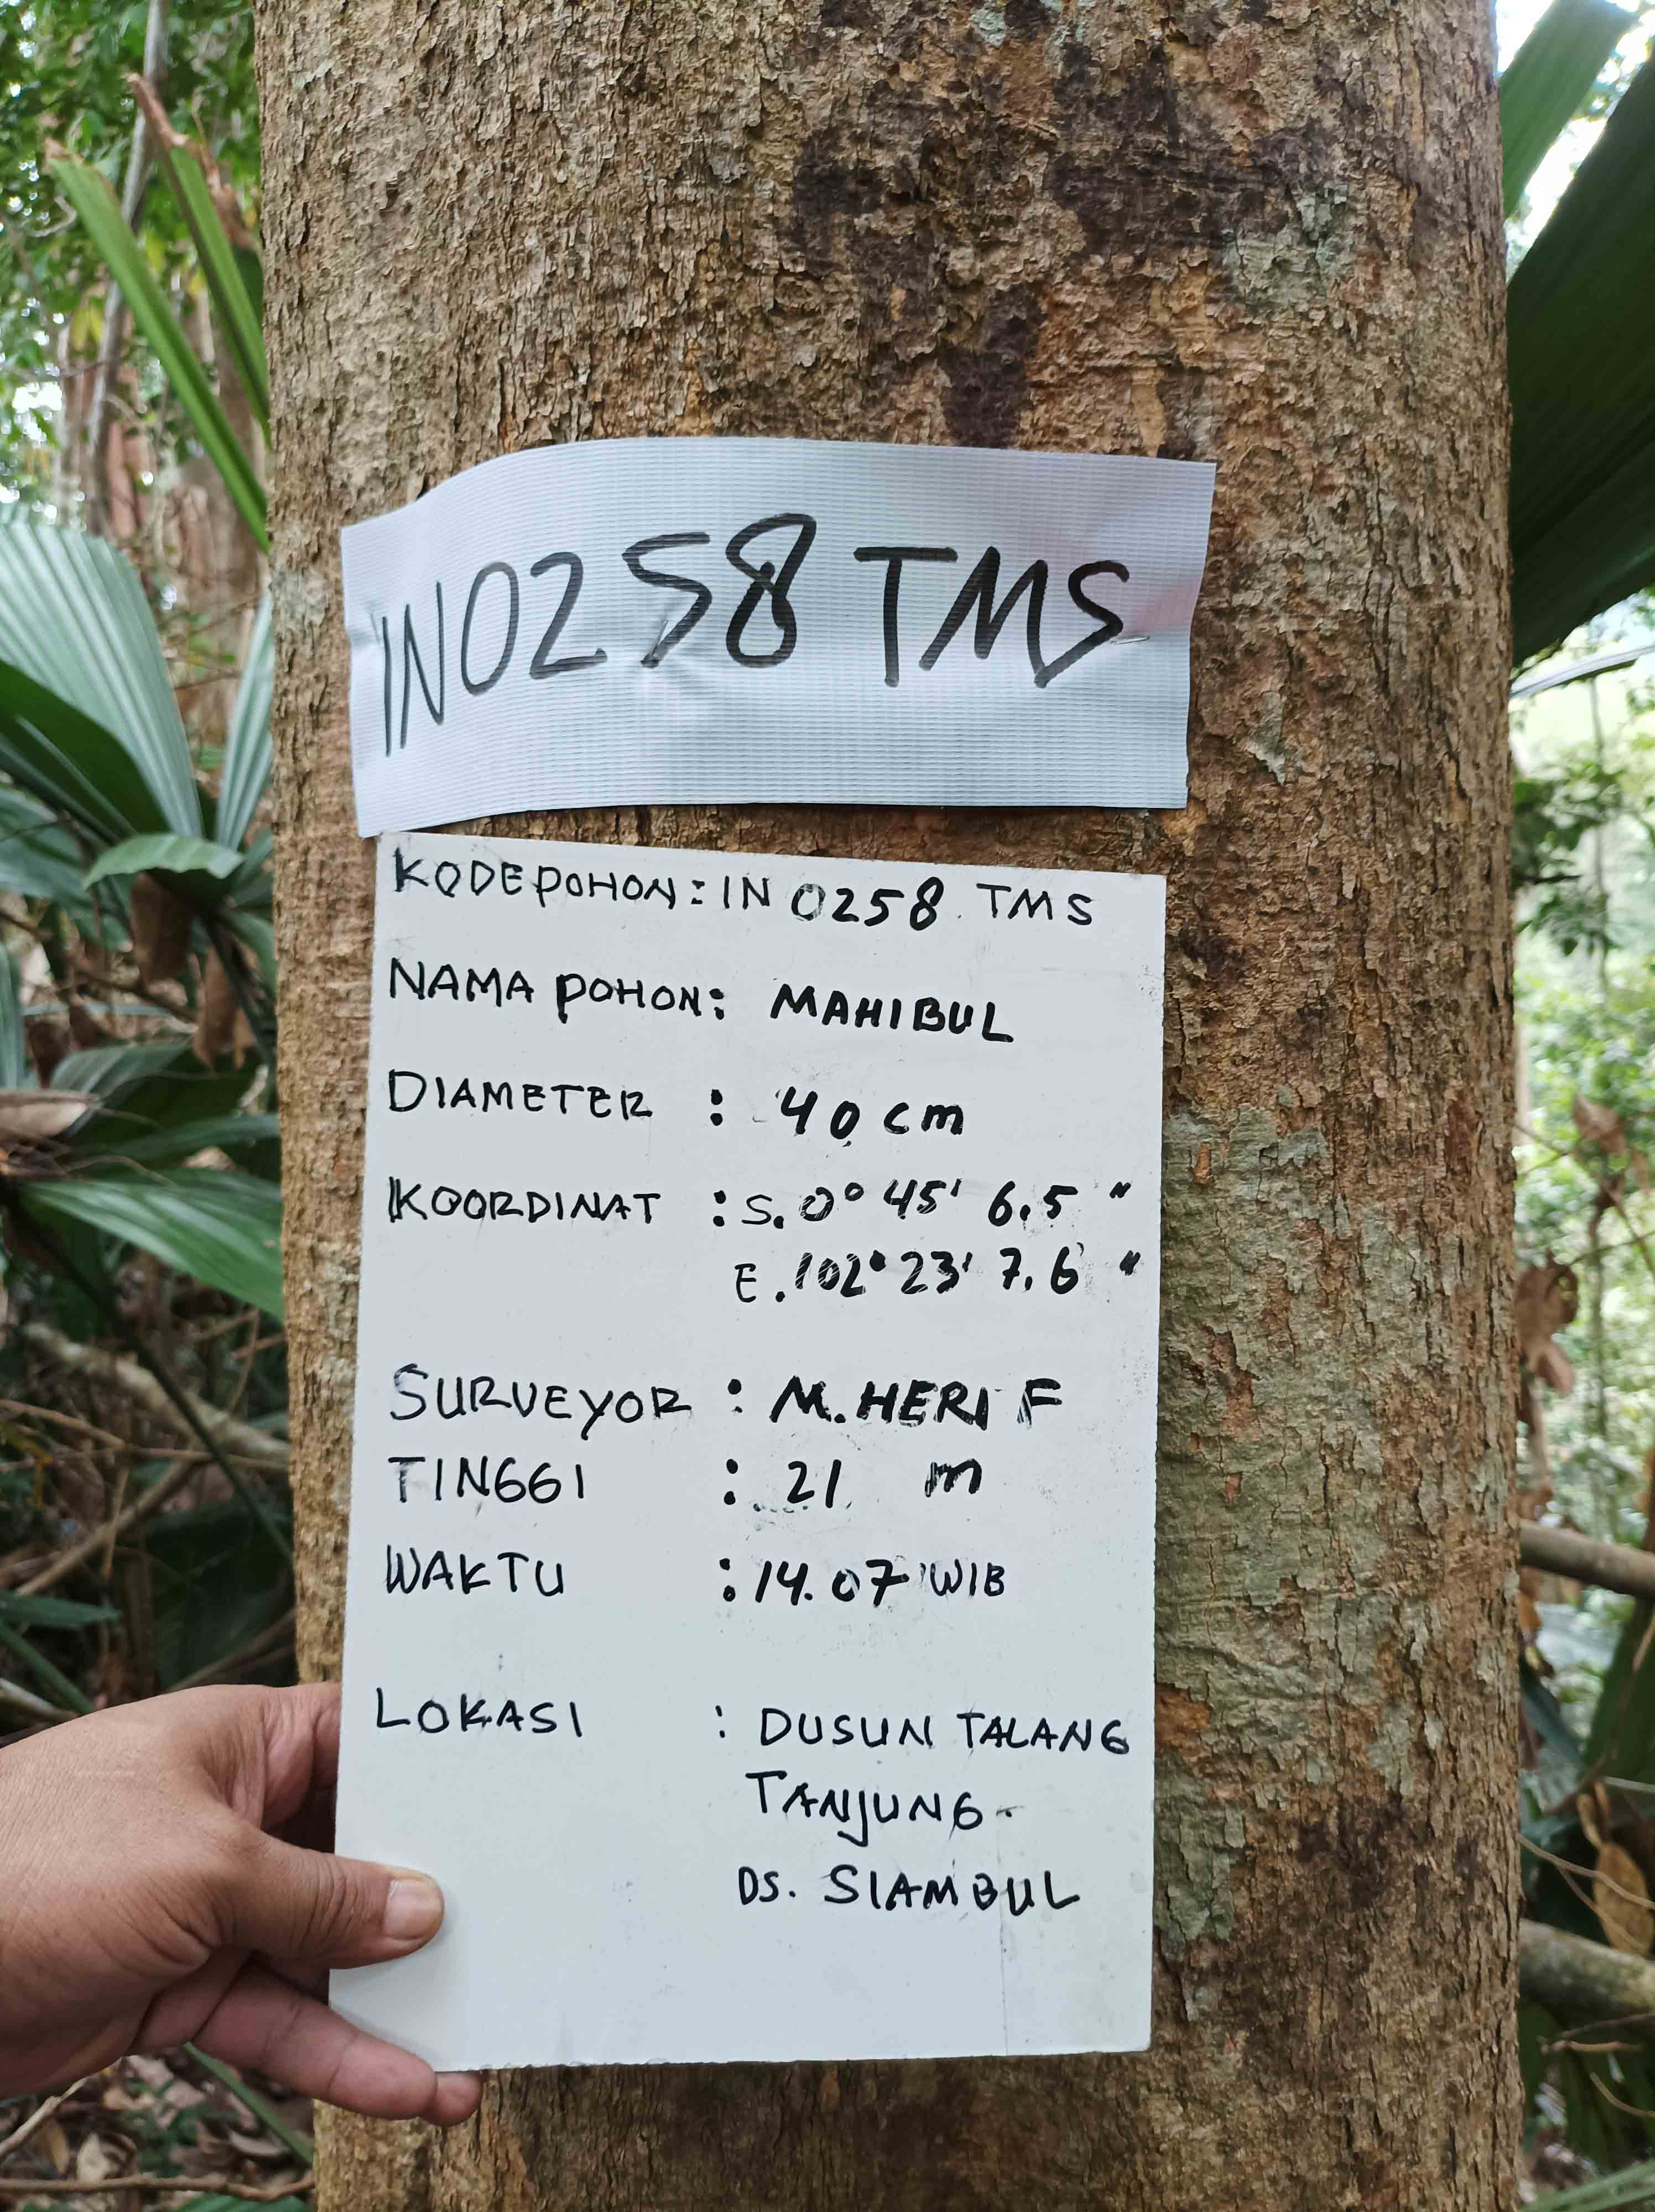 IN0258 TMS
KODE POHON : IN 0258 TMS
NAMA POHON : MAHIBUL
DIAMETER : 40 cm
KOORDINAT : S. 0° 45' 6.5 "
E. 102° 23' 7.6 "
SURVEYOR : M. HERI F
TINGGI : 21 m
WAKTU : 14.07 WIB
LOKASI : DUSUN TALANG
TANJUNG -
DS. SIAMBUL